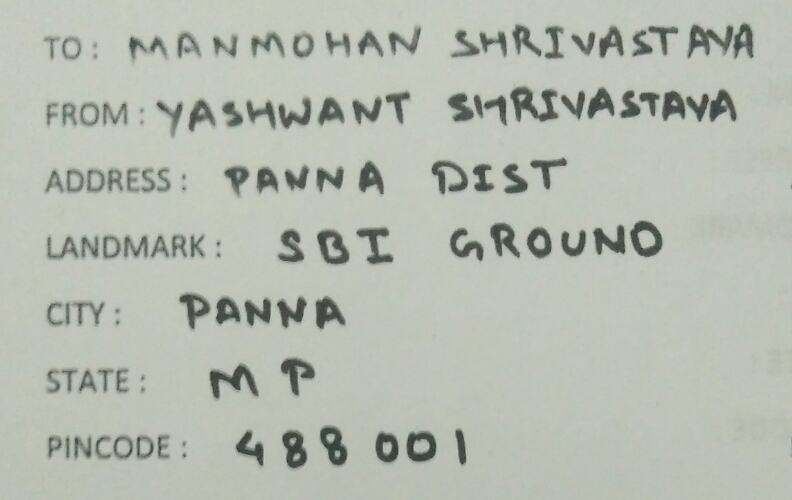 TO: MANMOHAN SHRIVASTAVA
FROM: YASHWANT SHRIVASTAVA
ADDRESS: PANNA DIST
LANDMARK: SBI GROUND
CITY: PANNA
STATE: MP
PINCODE: 488001